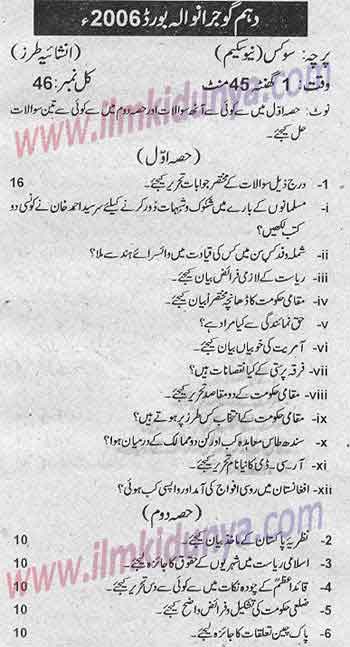 دہم گوجرانوالہ بورڈ 2006ء
پرچہ: سوکس (نیوسکیم) (انشائیہ طرز)
وقت: 1 گھنٹہ 45 منٹ کل نمبر: 46
نوٹ: حصہ اوّل میں سے کوئی سے آٹھ سوالات اور حصہ دوم میں سے کوئی سے تین سوالات
حل کیجئے۔
(حصہ اوّل)
1- درج ذیل سوالات کے مختصر جوابات تحریر کیجئے۔ 16
i- مسلمانوں کے بارے میں شکوک و شبہات دُور کرنے کیلئے سرسید احمد خان نے کونسی دو
کتب لکھیں؟
ii- شملہ وفد کس سن میں کس کی قیادت میں وائسرائے ہند سے ملا؟
iii- ریاست کے لازمی فرائض بیان کیجئے۔
iv- مقامی حکومت کا ڈھانچہ مختصراً بیان کیجئے۔
v- حق نمائندگی سے کیا مراد ہے؟
vi- آمریت کی خوبیاں بیان کیجئے۔
vii- فرقہ پرستی کے کیا نقصانات ہیں؟
viii- مقامی حکومت کے دو مقاصد تحریر کیجئے۔
ix- مقامی حکومت کے انتخاب کس طرز پر ہوتے ہیں؟
x- سندھ طاس معاہدہ کب اور کن دو ممالک کے درمیان ہوا؟
xi- آر۔سی۔ڈی کا نیا نام تحریر کیجئے۔
xii- افغانستان میں روسی افواج کی آمد اور واپسی کب ہوئی؟
(حصہ دوم)
2- نظریۂ پاکستان کے ماخذ بیان کیجئے۔ 10
3- اسلامی ریاست میں شہریوں کے حقوق کا جائزہ لیجئے۔ 10
4- قائداعظمؒ کے چودہ نکات میں سے کوئی سے دس تحریر کیجئے۔ 10
5- ضلعی حکومت کی تشکیل و فرائض واضح کیجئے۔ 10
6- پاک چین تعلقات کا جائزہ لیجئے۔ 10
www.ilmkidunya.com
www.ilmkidunya.com